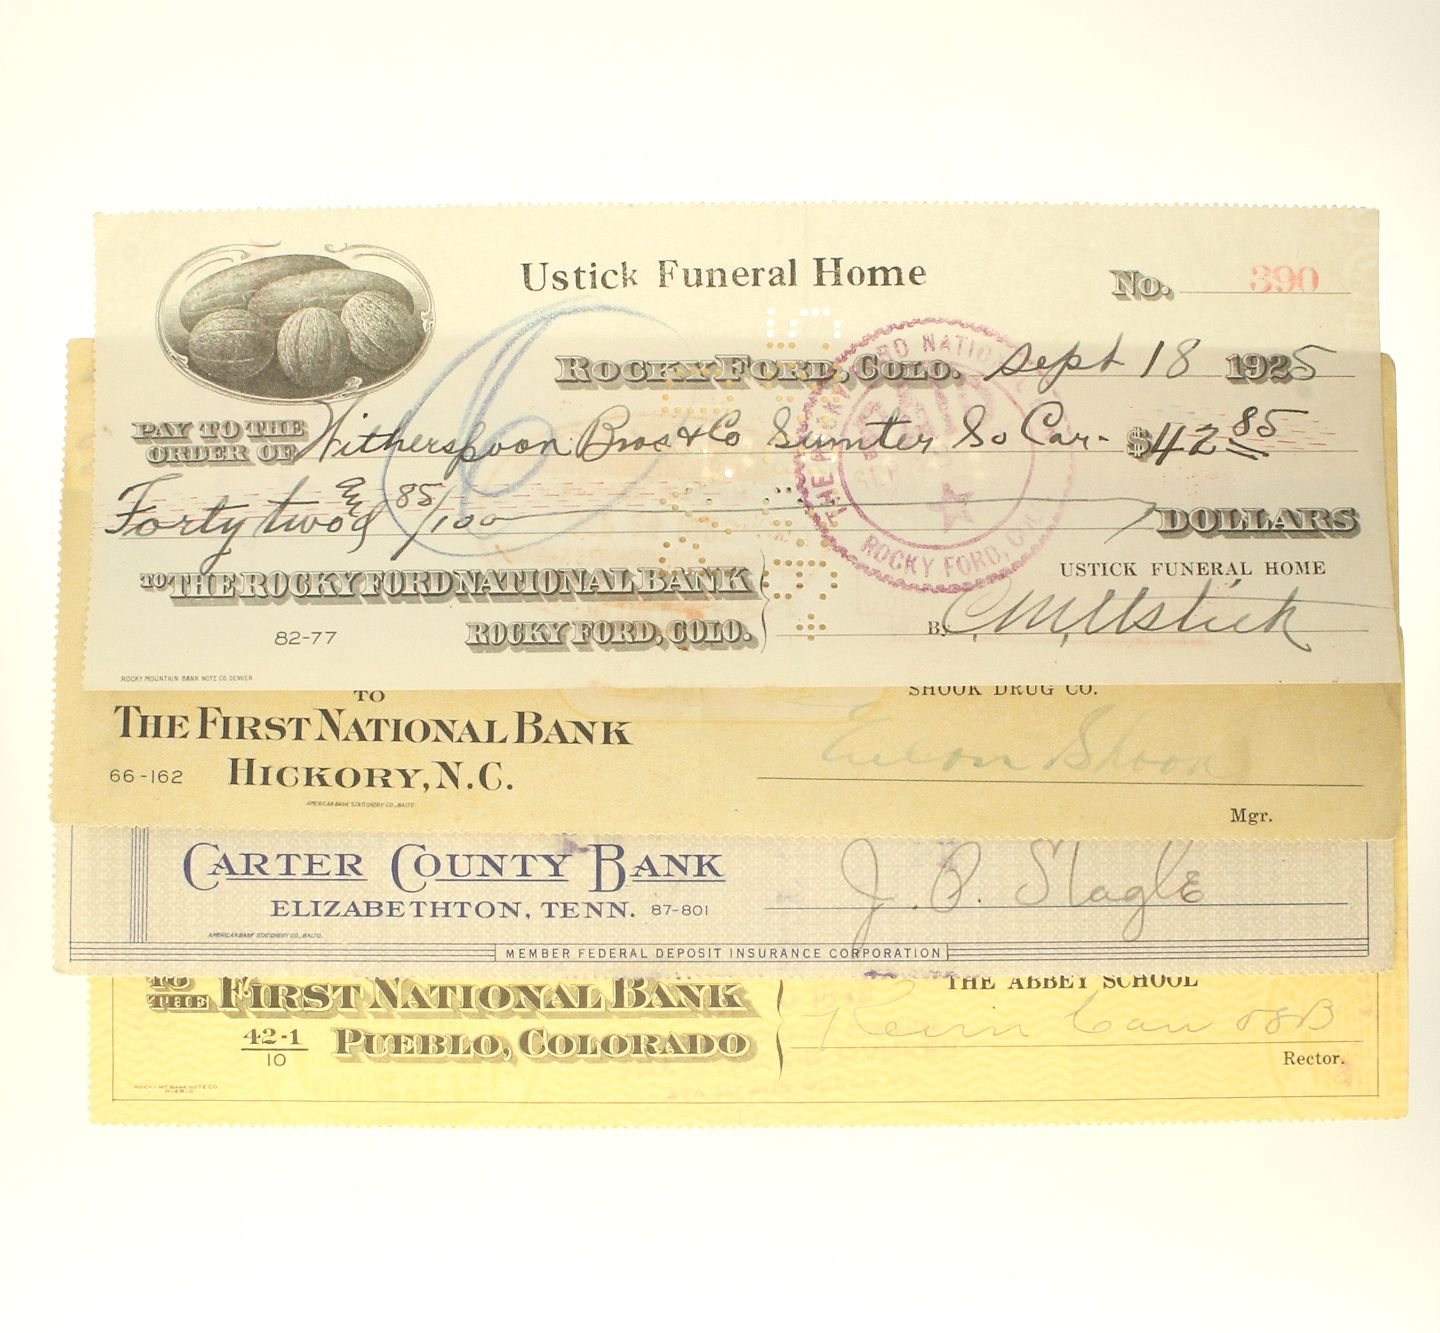 Ustick Funeral Home
No. 390
Rocky Ford, Colo. Sept 18 1925
Pay to the order of Witherspoon Bros & Co Sumter So Car- $42 85
Forty two and 85/100 Dollars
To The Rocky Ford National Bank
Rocky Ford, Colo.
82-77
USTICK FUNERAL HOME
By C. M. Ustick
ROCKY MOUNTAIN BANK NOTE CO. DENVER
THE ROCKY FORD NATIONAL
PAID
ROCKY FORD, COLO.
TO
The First National Bank
Hickory, N.C.
66-162
AMERICAN BANK STATIONERY CO., BALTO.
SHOOK DRUG CO.
Shook
Mgr.
Carter County Bank
Elizabethton, Tenn. 87-801
AMERICAN BANK STATIONERY CO., BALTO.
J. P. Slagle
MEMBER FEDERAL DEPOSIT INSURANCE CORPORATION
To the First National Bank
42-1
10
Pueblo, Colorado
ROCKY MT BANK NOTE CO.
PUEBLO
THE ABBEY SCHOOL
OSB
Rector.